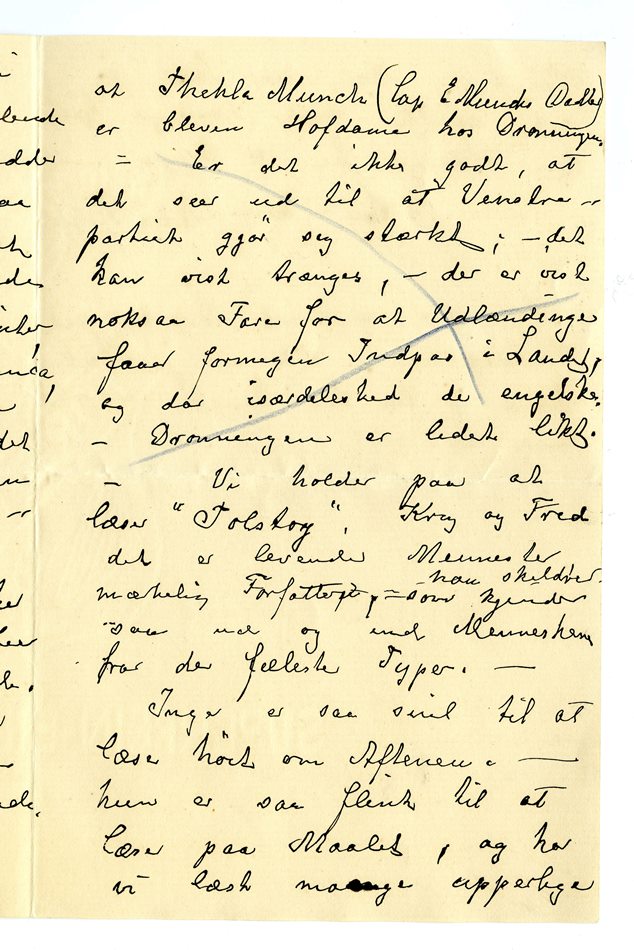 at Thekla Munch (Cap E Munchs Datter)
er bleven Hofdame hos Dronningen.
= Er det ikke godt, at
det seer ud til at Venstre-
partiet gjør seg stærkt; - det
kan vist trænges, - der er vist
noksaa Fare for at Udlændinge
faaer formegen Indpas i Landet,
og da isærdeleshed de engelske.
- Dronningen er ledet likt.
- Vi holder paa at
læser "Tolstoy", Krig og Fred
det er levende Mennesker han skildrer
mærkelig Forfatter, = som kjender
saa ud og ind Menneskene
fra de fleste Typer. -
Inga er saa snil til at
læse høit om Aftenen. -
hun er saa flink til at
læse paa Maalet, og har
vi læst mange upperlige